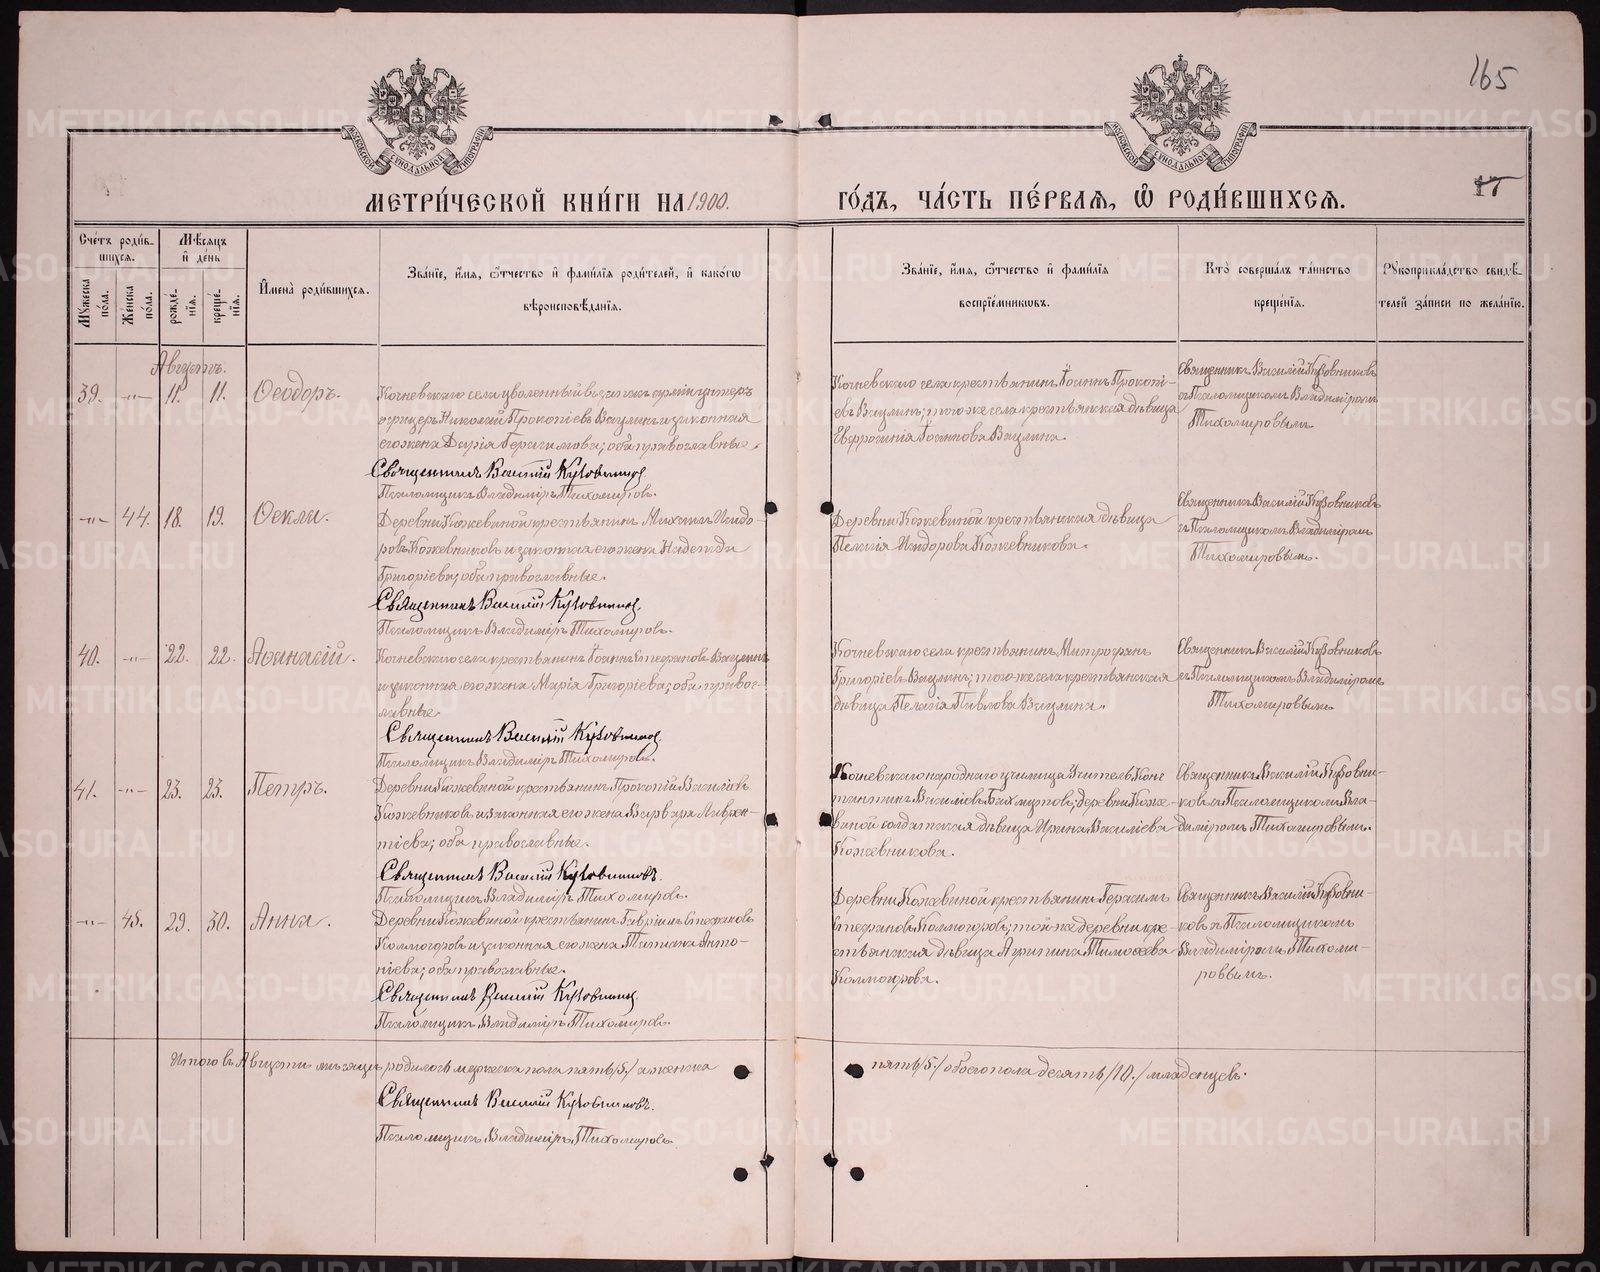 165
МОСКОВСКОЙ СУНОДАЛЬНОЙ ТИПОГРАФІИ
МОСКОВСКОЙ СУНОДАЛЬНОЙ ТИПОГРАФІИ
МЕТРИ́ЧЕСКОЙ КНИ́ГИ НА 1900.
ГО́ДЪ, ЧА́СТЬ ПЕ́РВАЯ, Ѽ РОДИ́ВШИХСЯ.
Сче́тъ роди́в-
шихся.
Мꙋ́жеска по́ла.
Же́нска по́ла.
Мѣ́сяцъ
и҆ де́нь
рожде́-
нїя.
креще́-
нїя.
И҆мена̀ роди́вшихся.
Зва́нїе, и҆́мя, ѻ҆́тчество и҆ фами́лїя роди́телей, и҆ како́гѡ
вѣроисповѣ́данїя.
Зва́нїе, и҆́мя, ѻ҆́тчество и҆ фами́лїя
воспрїе́мникѡвъ.
Кто̀ соверша́лъ та́инство
креще́нїя.
Рꙋкоприкла́дство свидѣ́-
телей за́писи по жела́нїю.
Августъ.
39. -"- 11. 11. Ѳеодоръ.
Кочневскаго села уволенный въ запасъ арміи унтеръ
офицеръ Николай Прокопіевъ Вацлинъ и законная
его жена Дарія Герасимова; оба православные.
Священникъ Василій Кузовников
Псаломщикъ Владиміръ Тихомировъ.
Кочневскаго села крестьянинъ Іоаннъ Прокопі-
евъ Вацлинъ; того же села крестьянская дѣвица
Евфросинія Іоаннова Вацлина.
Священникъ Василій Кузовниковъ
съ Псаломщикомъ Владиміромъ
Тихомировымъ.
-"- 44. 18. 19. Ѳекла.
Деревни Кожевиной крестьянинъ Михаилъ Исидо-
ровъ Кожевниковъ и законная его жена Надежда
Григоріева; оба православные.
Священникъ Василій Кузовников.
Псаломщикъ Владиміръ Тихомировъ.
Деревни Кожевиной крестьянская дѣвица
Пелагія Исидорова Кожевникова.
Священникъ Василій Кузовниковъ
съ Псаломщикомъ Владиміромъ
Тихомировымъ.
40. -"- 22. 22. Аѳанасій.
Кочневскаго села крестьянинъ Іоаннъ Стефановъ Вацлинъ
и законная его жена Марія Григоріева; оба правос-
лавные.
Священникъ Василій Кузовников.
Псаломщикъ Владиміръ Тихомировъ.
Кочневскаго села крестьянинъ Митрофанъ
Григоріевъ Вацлинъ; того же села крестьянская
дѣвица Пелагія Павлова Вацлина.
Священникъ Василій Кузовниковъ
съ Псаломщикомъ Владиміромъ
Тихомировымъ.
41. -"- 23. 23. Петръ.
Деревни Кожевиной крестьянинъ Прокопій Василіевъ
Кожевниковъ и законная его жена Варвара Лаврен-
тіева; оба православные.
Священникъ Василій Кузовниковъ.
Псаломщикъ Владиміръ Тихомировъ.
Кочневскаго народнаго училища Учитель Конс
тантинъ Василіевъ Бахмутовъ; деревни Коже-
виной солдатская дѣвица Ирина Василіева
Кожевникова.
Священникъ Василій Кузовни-
ковъ съ Псаломщикомъ Вла-
диміромъ Тихомировымъ.
-"- 45. 29. 30. Анна.
Деревни Кожевиной крестьянинъ Гавріилъ Стефановъ
Колмогоровъ и законная его жена Татіана Анто-
ніева; оба православные.
Священникъ Василій Кузовников.
Псаломщикъ Владиміръ Тихомировъ.
Деревни Кожевиной крестьянинъ Герасимъ
Стефановъ Колмогоровъ; той же деревни кре-
стьянская дѣвица Агрипина Тимоѳеева
Колмогорова.
Священникъ Василій Кузовни-
ковъ съ Псаломщикомъ
Владиміромъ Тихоми-
ровымъ.
Итого въ Августѣ мѣсяцѣ родилось мужеска пола пять /5./ а женска
пять /5./ обоего пола десять /10./ младенцевъ.
Священникъ Василій Кузовниковъ.
Псаломщикъ Владиміръ Тихомировъ.
METRIKI.GASO-URAL.RU